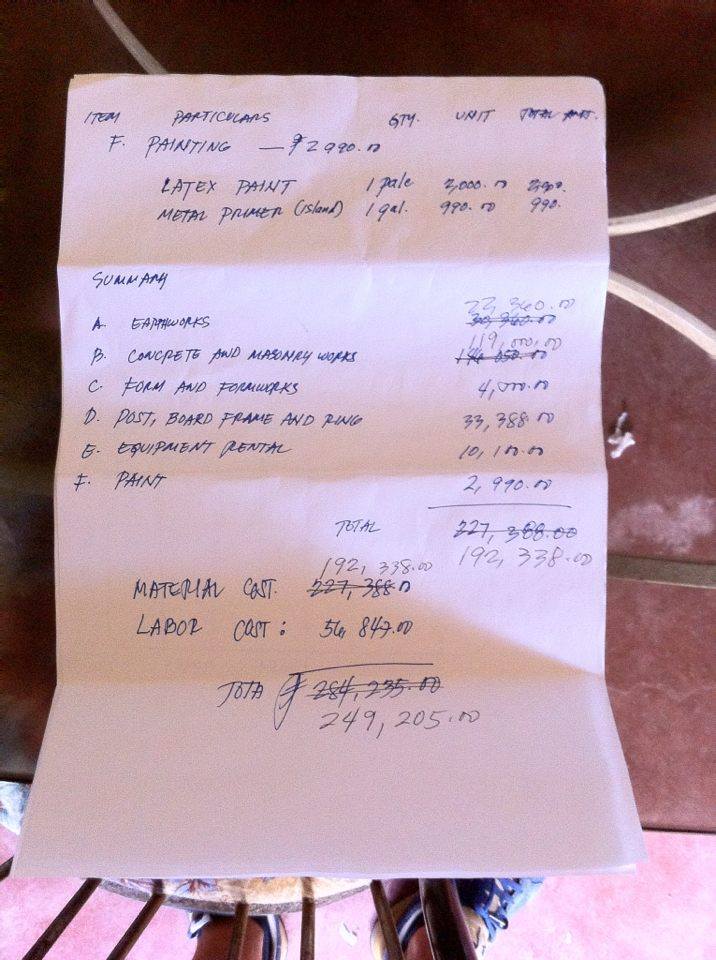 ITEM PARTICULARS QTY. UNIT TOTAL AMT.
F. PAINTING — ₱2990.00
LATEX PAINT 1 pale 2,000.00
METAL PRIMER (island) 1 gal. 990.00 990.
SUMMARY
22,360.00
A. EARTHWORKS 30,360.00
119,500.00
B. CONCRETE AND MASONRY WORKS
C. FORM AND FORMWORKS 4,000.00
D. POST, BOARD FRAME AND RING 33,388.00
E. EQUIPMENT RENTAL 10,100.00
F. PAINT 2,990.00
TOTAL 227,388.00
192,338.00 192,338.00
MATERIAL COST. 227,388.00
LABOR COST: 56,847.00
TOTA ₱ 284,235.00
249,205.00